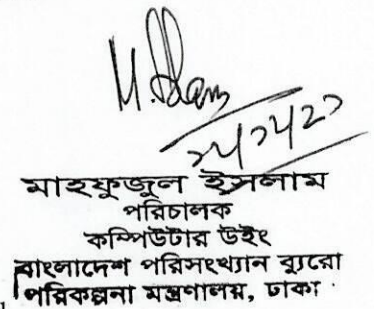 M. Islam
মাহফুজুল ইসলাম
পরিচালক
কম্পিউটার উইং
বাংলাদেশ পরিসংখ্যান ব্যুরো
পরিকল্পনা মন্ত্রণালয়, ঢাকা